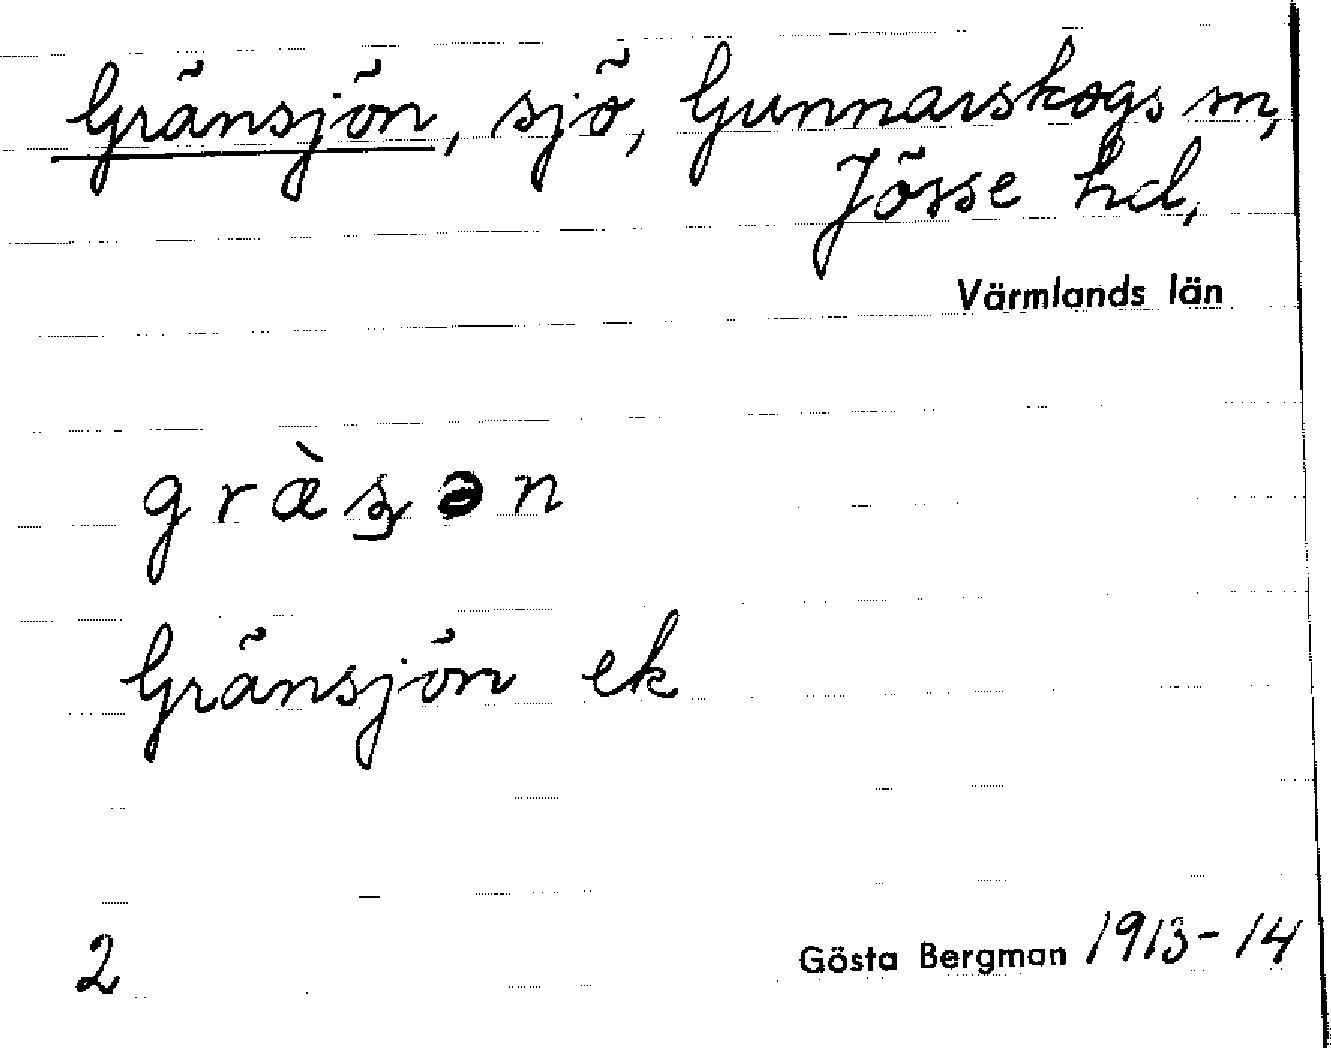 Gränsjön, sjö, Gunnarskogs sn,
Jösse hd,
Värmlands län
græ̀s̠ən
Gränsjön ek
2
Gösta Bergman 1913-14